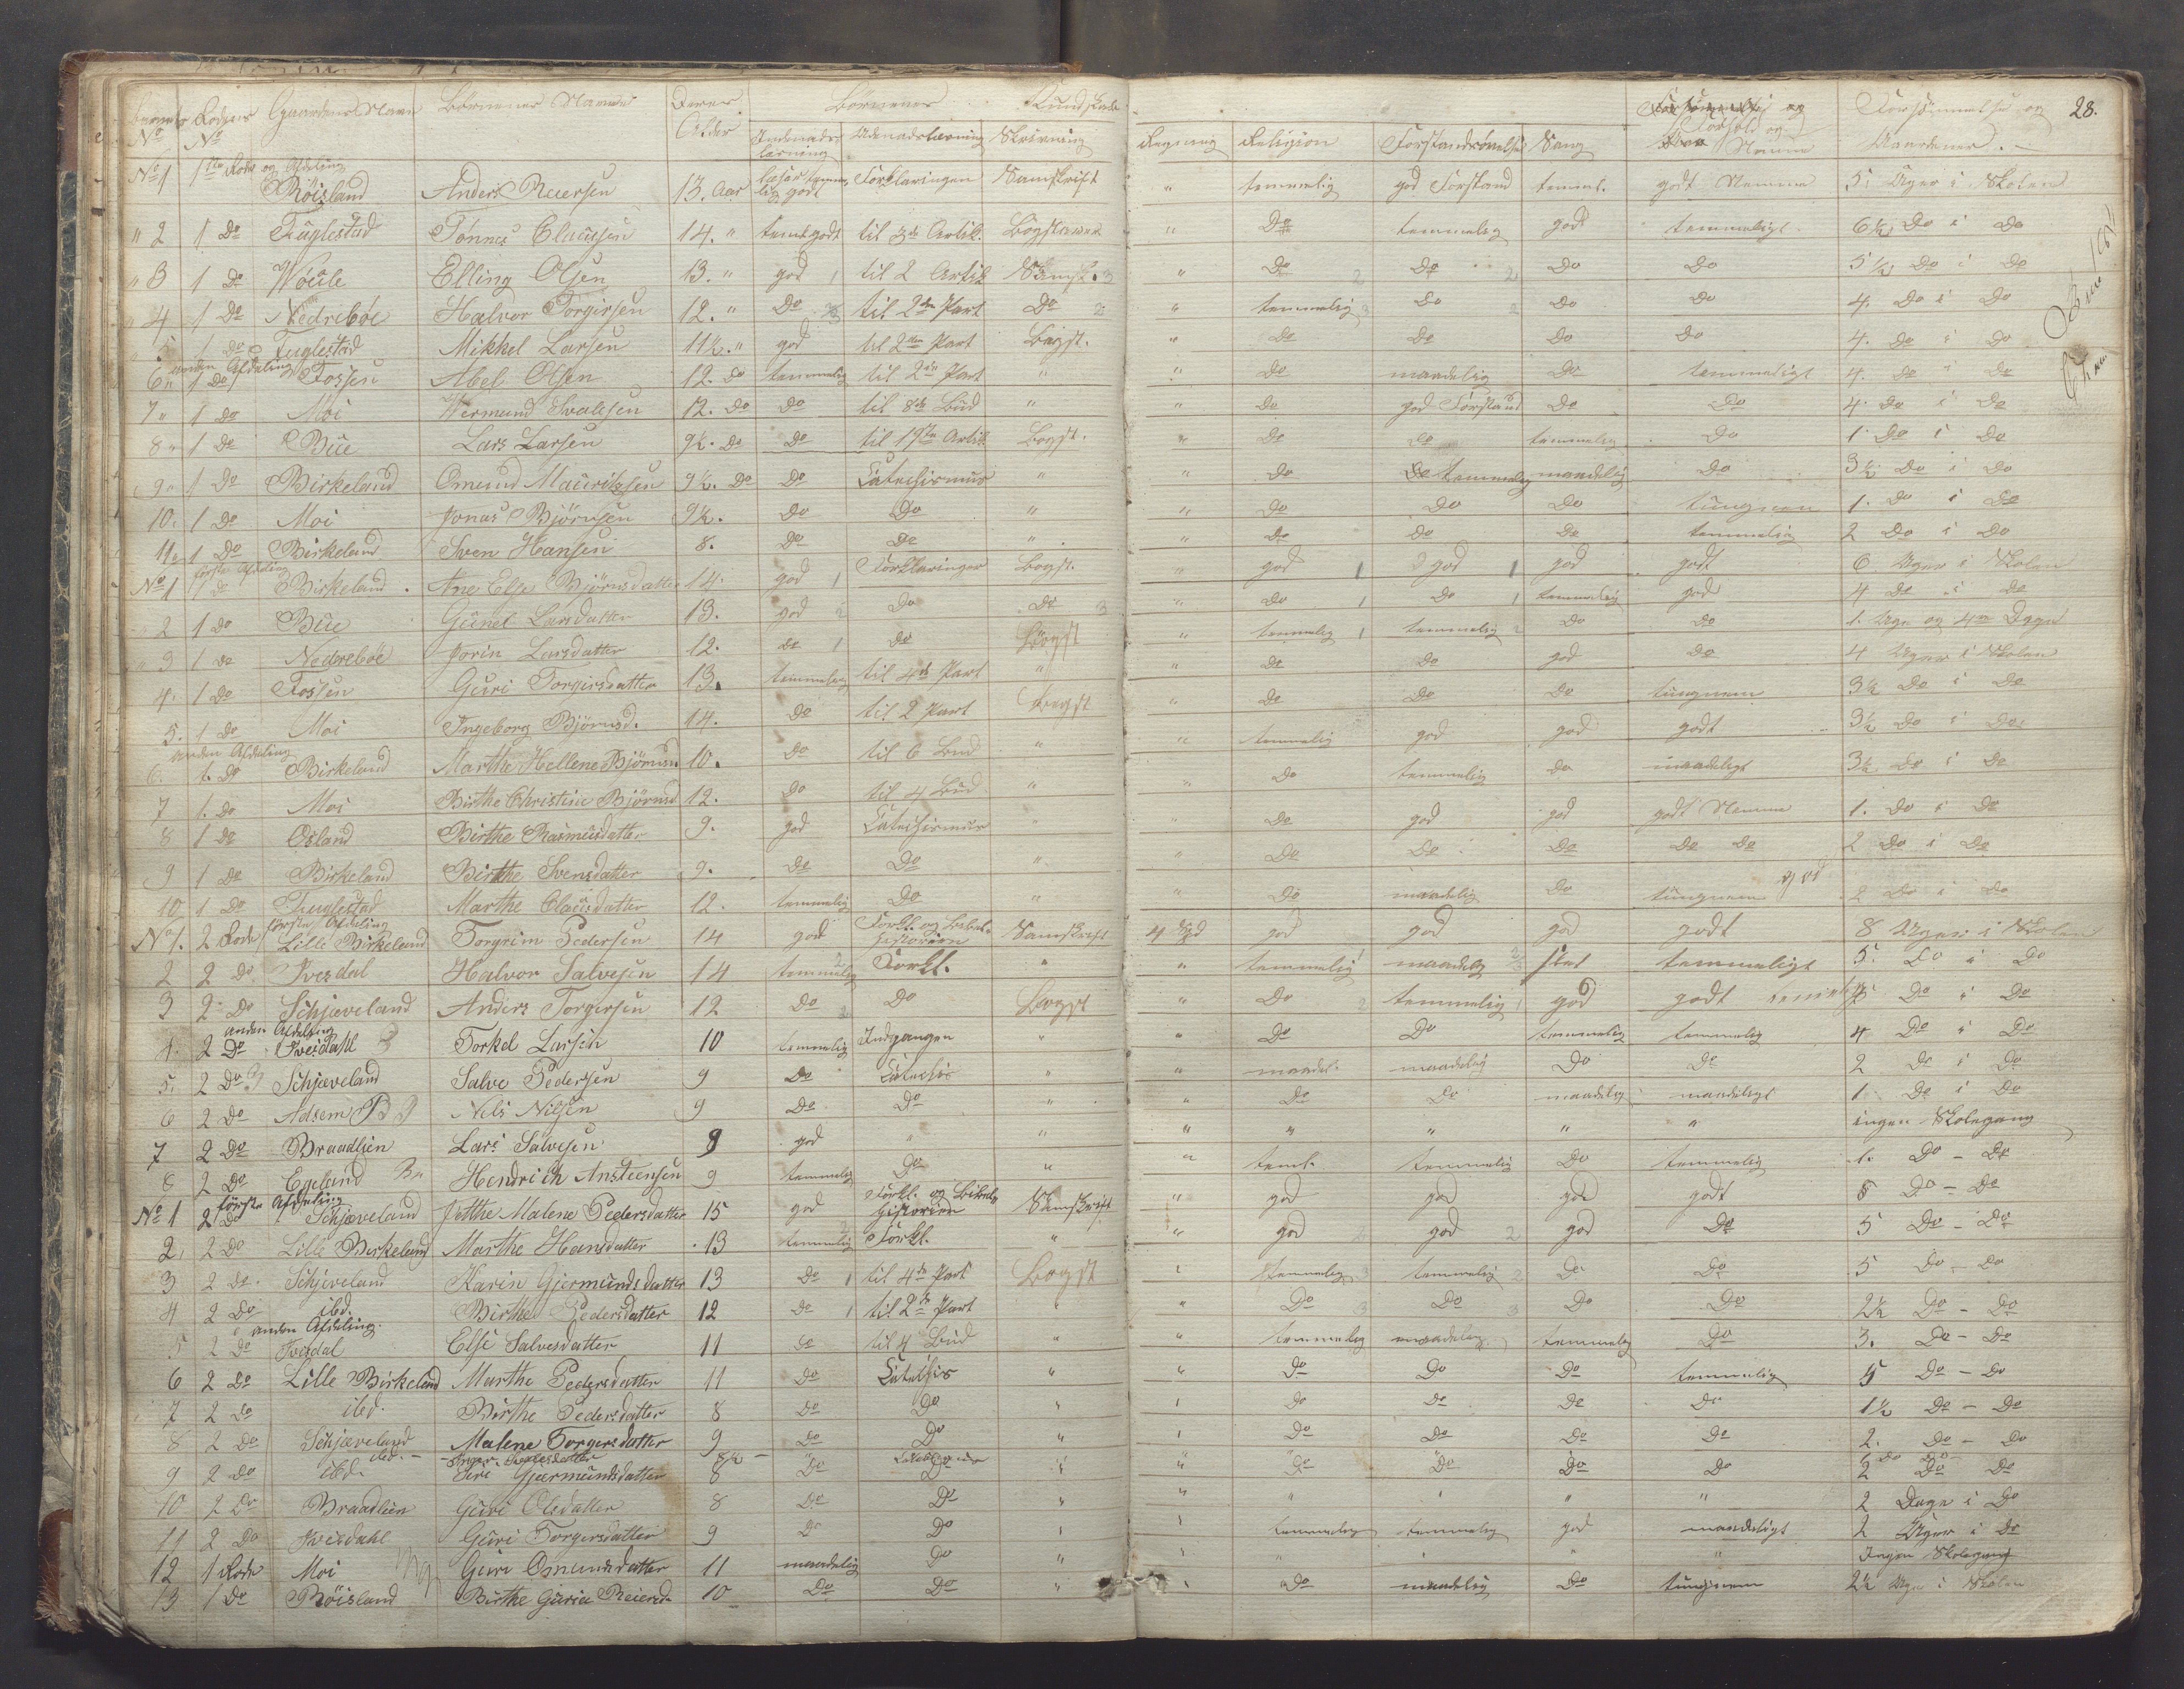 28.
No No Gaardenes Navn Børnenes Navne Deres Alder Børnenes Kundskab
Indenadslæsning Udenadslæsning Skrivning Regning Religion Forstandsøvelse Sang Forhold og Nemme Forsømmelse og
No 1 1ste Rode og Afdeling Röisland Anders Reiersen 13. Aar læser temmelig godt Forklaringen Samskrift " temmelig god Forstand temmel. godt Nemme 5 Uger i Skolen
" 2 1 Do Fuglestad Tönnes Claussen 14. " teml. godt til 3de Artik. Bogstaver " Do temmelig god temmeligt 6½ Do i Do
" 3 1 Do Elling Olsen 13. " god 1 til 2 Artik Samsk. 3 " Do 2 Do 2 Do Do 5½ Do i Do
4 1 Do Nedreböe Halvor Torgersen 12. " Do til 2den Part Do 2 " temmelig 3 Do 2 Do Do 4. Do i Do
5 1 Do Fuglestad Mikkel Larsen 11½. " god til 2den Part Bogst. " Do Do Do Do 4. Do i Do
anden Afdeling
6 " 1 Do Fossen Abel Olsen 12. Do temmelig til 2den Part " " Do maadelig Do temmeligt 4. Do i Do
7 " 1 Do Moi Vermund Svalesen 12. Do Do til 8de Bud " " Do god Forstand Do Do 4. Do i Do
8 " 1 Do Bue Lars Larsen 9½. Do Do til 1ste Artik. Bogst. " Do Do temmelig Do 1 Do i Do
9 " 1 Do Birkeland Omund Mauritzsen 9½. Do Do Catechismus " " Do temmelig maadelig Do 3½ Do i Do
10. 1 Do Moi Jonas Björnsen 9½. Do Do " " Do Do Do tungnem 1. Do i Do
11 1 Do Birkeland Sven Hansen 8. Do Do " " Do Do Do temmelig 2 Do i Do
förste Afdeling
No 1 1 Do Birkeland Ane Else Björnsdatter 14. god 1 Forklaringen Bogst. " god 1 god 1 god godt 6 Uger i Skolen
2 1 Do Bue Gunel Larsdatter 13. god 2 Do Do 3 " Do 1 Do 1 temmelig god 4 Do i Do
3 1 Do Nedreböe Jorin Larsdatter 12. Do 1 Do Bogst " temmelig 1 temmelig 2 Do Do 1. Uge og 4 Dage
4. 1 Do Fossen Guri Torgersdatter 13. temmelig til 4de Part " " Do Do god Do 4 Uger i Skolen
5. 1 Do Moi Ingeborg Björnsd. 14. Do til 2 Part Bogst " Do Do Do tungnem 3½ Do i Do
anden Afdeling
6. 1. Do Birkeland Marthe Hellene Björnsd. 10. Do til 6 Bud " " temmelig god god godt 3½ Do i Do
7 1. Do Moi Birthe Christine Björnsd 12. Do til 4 Bud " " Do temmelig Do maadeligt 3½ Do i Do
8 1 Do Osland Birthe Rasmusdatter 9. god Catechismus " " Do god god godt Nemme 1. Do i Do
9 1 Do Birkeland Birthe Svensdatter 9. Do Do " " Do Do Do Do Do 2 Do i Do
10 1 Do Fuglestad Marthe Clausdatter 12. temmelig Do " " Do maadelig Do tungnem god 2 Do i Do
förste Afdeling
No 1. 2 Rode Lille Birkeland Torgrim Pedersen 14 god Forkl. og Bibel-Historien Samskrift god god god godt 8 Uger i Skolen
2 2 Do Ivesdal Halvor Salvesen 14 temmelig Forkl. " " temmelig maadelig slet temmeligt 5. Do i Do
3 2 Do Schjæveland Anders Torgersen 12 Do Do Bogst " Do 2 temmelig 1 god godt Do i Do
anden Afdeling
4. 2 Do Ivesdahl Torkel Larsen 10 temmelig Indgangen " " Do Do temmelig temmelig 4 Do i Do
5. 2 Do Schjæveland Salve Pedersen 9 Do Catechis " " maadel. maadelig Do Do 2 Do i Do
6 2 Do Adsem Nils Nilsen 9 Do Do " " Do Do maadelig maadeligt 1 Do i Do
7 2 Do Braadlien Lars Salvesen 9 god " " " " " " " ingen Skolegang
8 2 Do Egeland Hendrich Ansteensen 9 temmelig Do " " teml. temmelig Do temmelig 1. Do - Do
förste Afdeling
No 1 2 Do Schjæveland Jetthe Malene Pedersdatter 15 god Forkl. og Bibel Historien Samskrift " god god god godt 8 Do - Do
2. 2 Do Lille Birkeland Marthe Hansdatter 13 temmelig 2 Forkl. " " god 2 god 2 god Do 5 Do - Do
3 2 Do Schjæveland Karin Gjermundsdatter 13 Do 1 til 4de Part Bogst " temmelig 3 temmelig 2 Do Do 5 Do - Do
4 2 Do ibd. Birthe Pedersdatter 12 Do 1 til 2de Part " " Do 3 Do 3 Do Do 2½ Do - Do
anden Afdeling.
5 2 Do Ivesdal Else Salvesdatter 11 Do til 4 Bud " " temmelig maadelig temmelig Do 3. Do - Do
6 2 Do Lille Birkeland Marthe Pedersdatter 11 Do Catechis " " Do Do Do temmelig 5 Do - Do
7 2 Do ibd. Birthe Pedersdatter 8 Do Do " " Do Do Do Do 1½ Do - Do
8 2 Do Schjæveland Malene Torgersdatter 9 Do Do " " Do Do Do Do 2. Do - Do
ibd. - 8½ -
9 2 Do ibd. Siri Gjermundsdatter 8 Do Do " " Do Do Do Do 2 Do Do
10 2 Do Braadlien Guri Olsdatter 8 Do Do " " " " " " 2 Dage i Do
11 2 Do Ivesdahl Guri Torgersdatter 9 Do Do " " temmelig temmelig god maadeligt 2 Uger i Do
12 1 Rode Moi Guri Omundsdatter 11 maadelig Do " " " " " " Ingen Skolegang
13 1 Do Röisland Birthe Guria Reiersd. 10 Do Do " " Do maadelig Do tungnem 2½ Uger i Skolen